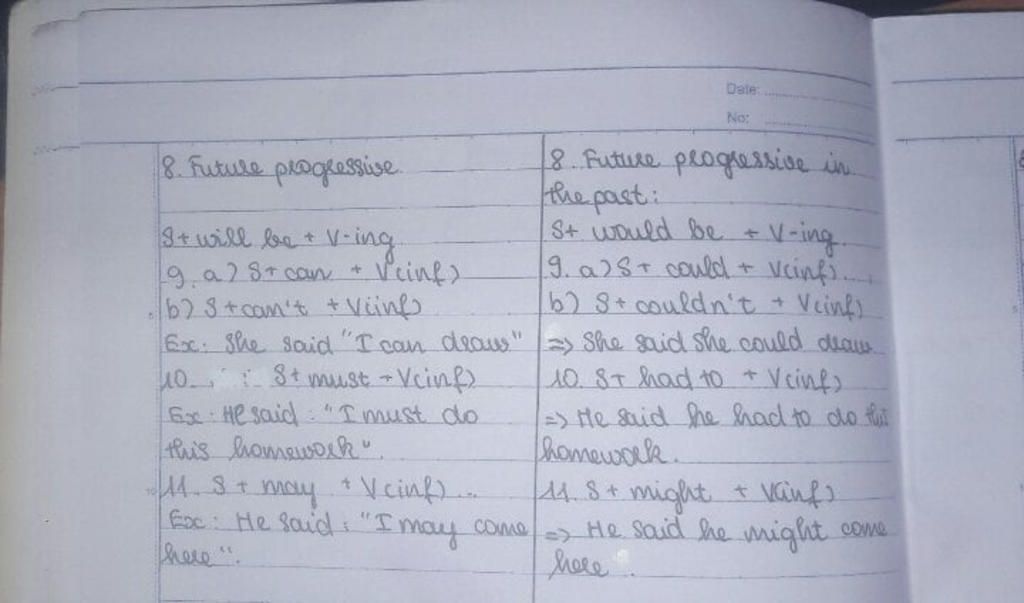 Date: ....................
No: ....................
8. Future progressive
S+ will be + V-ing
9. a) S+ can + V(inf)
b) S + can't + V(inf)
Ex: She said "I can draw"
10. : S + must + V(inf)
Ex: He said: "I must do
this homework".
11. S + may + V(inf) ..
Ex: He said: "I may come
here".
8. Future progressive in
the past:
S+ would be + V-ing
9. a) S+ could + V(inf)....
b) S + couldn't + V(inf)
=> She said she could draw
10. S+ had to + V(inf)
=> He said he had to do this
homework.
11. S + might + V(inf)
=> He said he might come
here.